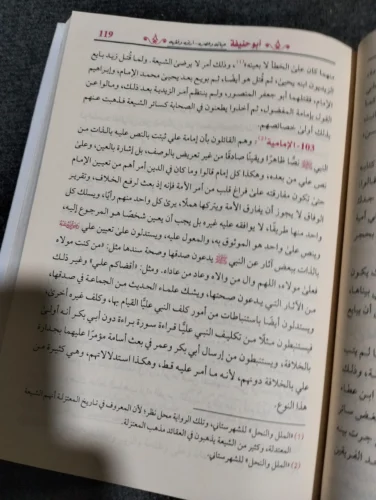 119
أبو حنيفة حياته وعصره - آراؤه وفقهه
منهما كان على الخطأ لا بعينه»(١)، وذلك أمر لا يرضي الشيعة. ولما قُتل زيد بايع
الزيديون ابنه يحيى، ثم قُتل هو أيضًا، ثم بويع بعد يحيى محمد الإمام، وإبراهيم
الإمام، فقتلهما أبو جعفر المنصور، ولم ينتظم أمر الزيدية بعد ذلك، ومالوا عن
القول بإمامة المفضول، ثم أخذوا يطعنون في الصحابة كسائر الشيعة فذهبت عنهم
بذلك أولى خصائصهم.
103- الإمامية(٢): وهم القائلون بأن إمامة علي ثبتت بالنص عليه بالذات من
النبي ﷺ نصًّا ظاهرًا ويقينًا صادقًا من غير تعريض بالوصف، بل إشارة بالعين، وعلي
نص علي من بعده، وهكذا كل إمام قالوا وما كان في الدين أمر أهم من تعيين الإمام
حتى تكون مفارقته على فراغ قلب من أمر الأمة فإنه إذ بعث لرفع الخلاف، وتقرير
الوفاق لا يجوز أن يفارق الأمة ويتركها هملًا، يرى كل واحد منهم رأيًا، ويسلك كل
واحد منها طريقًا، لا يوافقه عليه غيره بل يجب أن يعين شخصًا هو المرجوع إليه،
وينص على واحد هو الموثوق به، والمعول عليه، ويستدلون على تعيين علي
بالذات ببعض آثار عن النبي ﷺ يدعون صدقها وصحة سندها مثل: «من كنت مولاه
فعلي مولاه، اللهم وال من والاه وعاد من عاداه. ومثل: «أقضاكم علي» وغير ذلك
من الآثار التي يدعون صحتها، ويشك علماء الحديث من الجماعة في صدقها،
ويستدلون أيضًا باستنباطات من أمور كلف النبي عليًّا القيام بها، وكلف غيره أخرى،
فيستنبطون مثلًا من تكليف النبي عليًّا قراءة سورة براءة دون أبي بكر أنه أولى
بالخلافة، ويستنبطون من إرسال أبي بكر وعمر في بعث أسامة مؤمرًا عليهما بجدارة
علي بالخلافة دونهم، لأنه ما أمر عليه قط، وهكذا استدلالاتهم، وهي كثيرة من
هذا النوع.
(١) «الملل والنحل» للشهرستاني، وتلك الرواية محل نظر؛ لأن المعروف في تاريخ المعتزلة أنهم الشيعة
المعتدلة، وكثير من الشيعة يذهبون في العقائد مذهب المعتزلة.
(٢) «الملل والنحل» للشهرستاني.